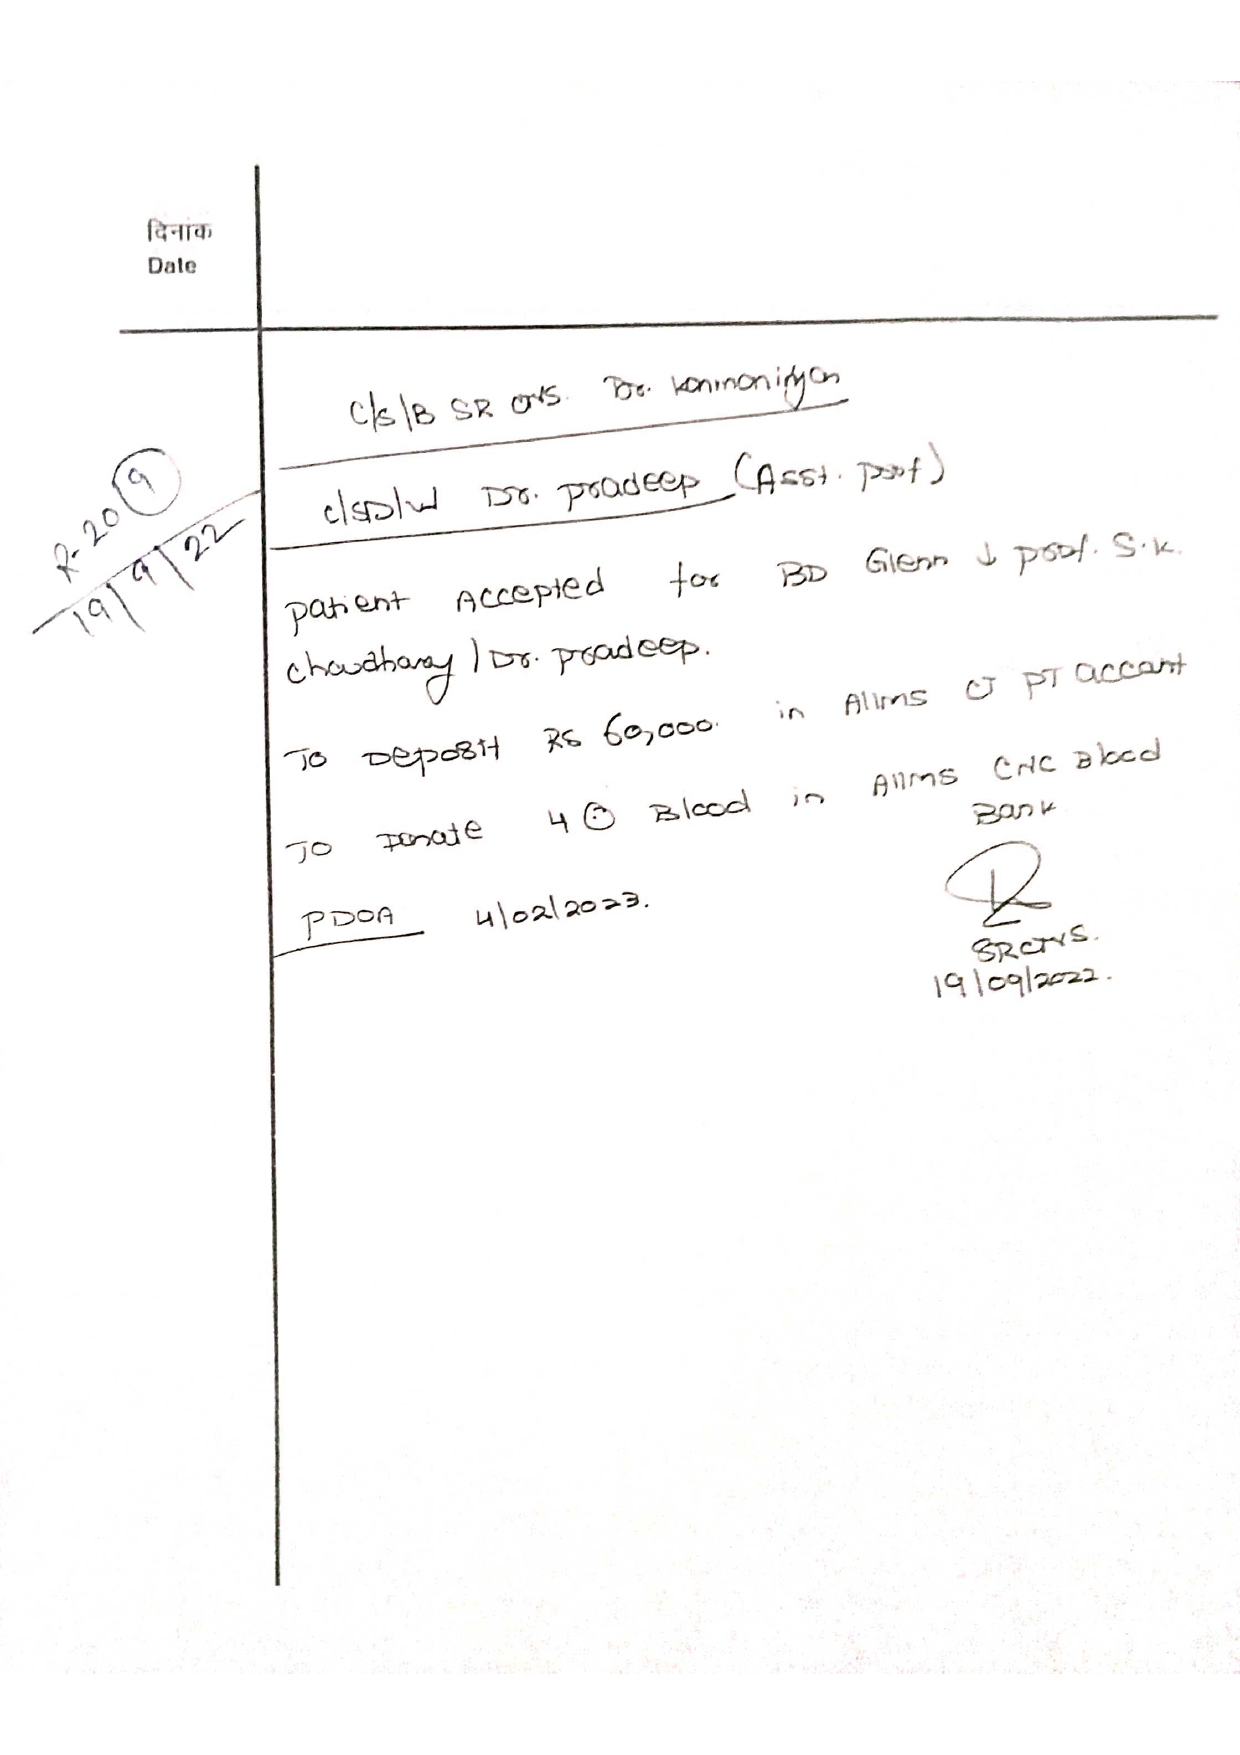 दिनांक
Date
C/S/B SR CTVS. Dr.
R-20 9
19/9/22
C/S/D/W Dr. Pradeep (Asst. Prof)
Patient Accepted for BD Glenn ↓ Prof. S.K.
Choudhary / Dr. Pradeep.
To Deposit RS 60,000. in AIIMS PT account
To Donate 4 Blood in AIIMS CNC Blood
Bank
PDOA 4/02/2023.
SRCTVS.
19/09/2022.